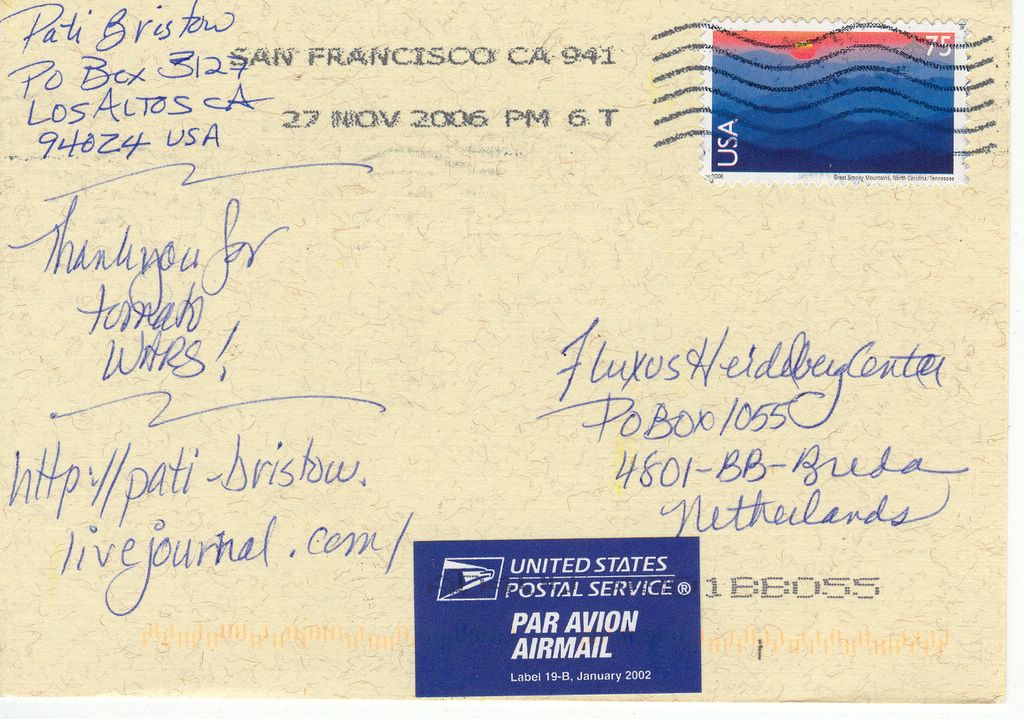 Pati Bristow
PO Box 3127
LOS ALTOS CA
94024 USA
SAN FRANCISCO CA 941
27 NOV 2006 PM 6 T
75
USA
2006
Great Smoky Mountains, North Carolina/Tennessee
Thank you for
tomato
WARS!
http://pati-bristow.
livejournal.com/
Fluxus Heidelberg Center
PO BOX 1055
4801-BB-Breda
Netherlands
UNITED STATES
POSTAL SERVICE®
PAR AVION
AIRMAIL
Label 19-B, January 2002
1BB055